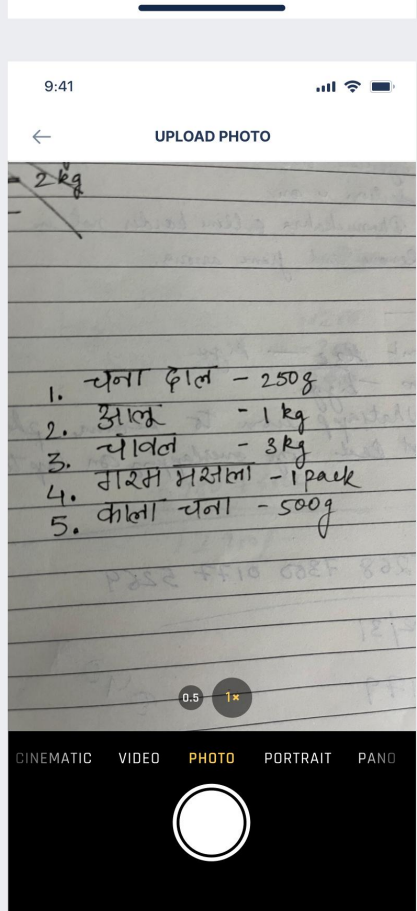 9:41
UPLOAD PHOTO
- 2 kg
1. चना दाल - 250g
2. आलू - 1 kg
3. चावल - 3kg
4. गरम मसाला - 1 pack
5. काला चना - 500g
0.5 1×
CINEMATIC VIDEO PHOTO PORTRAIT PANO